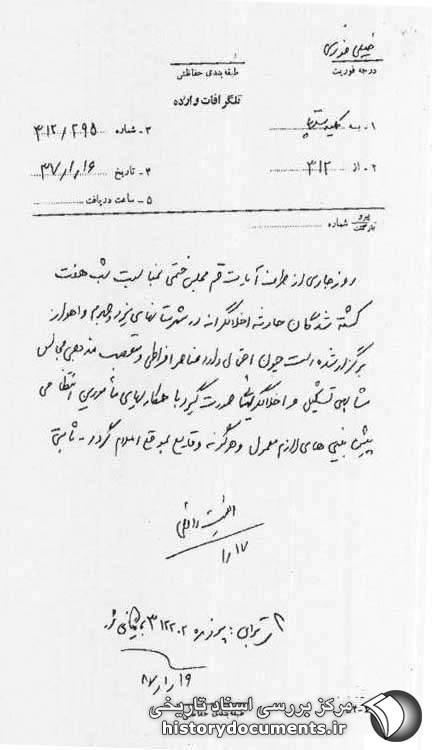 خیلی فوری
درجه فوریت
طبقه‌بندی حفاظتی
تلگرافات وارده
۱ - به کلیه ساواکها
۳ - شماره ۳۱۲/۲۹۵
۲ - از ۳۱۲
۴ - تاریخ ۳۷/۱/۱۶
۵ - ساعت دریافت
پیرو
بازگشت
شماره
روز جاری از طرف آیات قم مجلس ختمی بمناسبت شب هفت
کشته شدگان حادثه اخلالگرانه در شهرستانهای یزد و جهرم و اهواز
برگزار شده است چون احتمال دارد عناصر افراطی و متعصب مذهبی مجالس
مشابهی تشکیل و اخلالگریهائی صورت گیرد با همکاریهای مأمورین انتظامی
پیش بینی های لازم معمول و هرگونه وقایع بموقع اعلام گردد - ثابتی
۱/۱۷
پرونده ۳۱۲۲۰۲ بایگانی شود
۱۹/۱/۳۷
طبقه‌بندی حفاظتی
مرکز بررسی اسناد تاریخی
historydocuments.ir